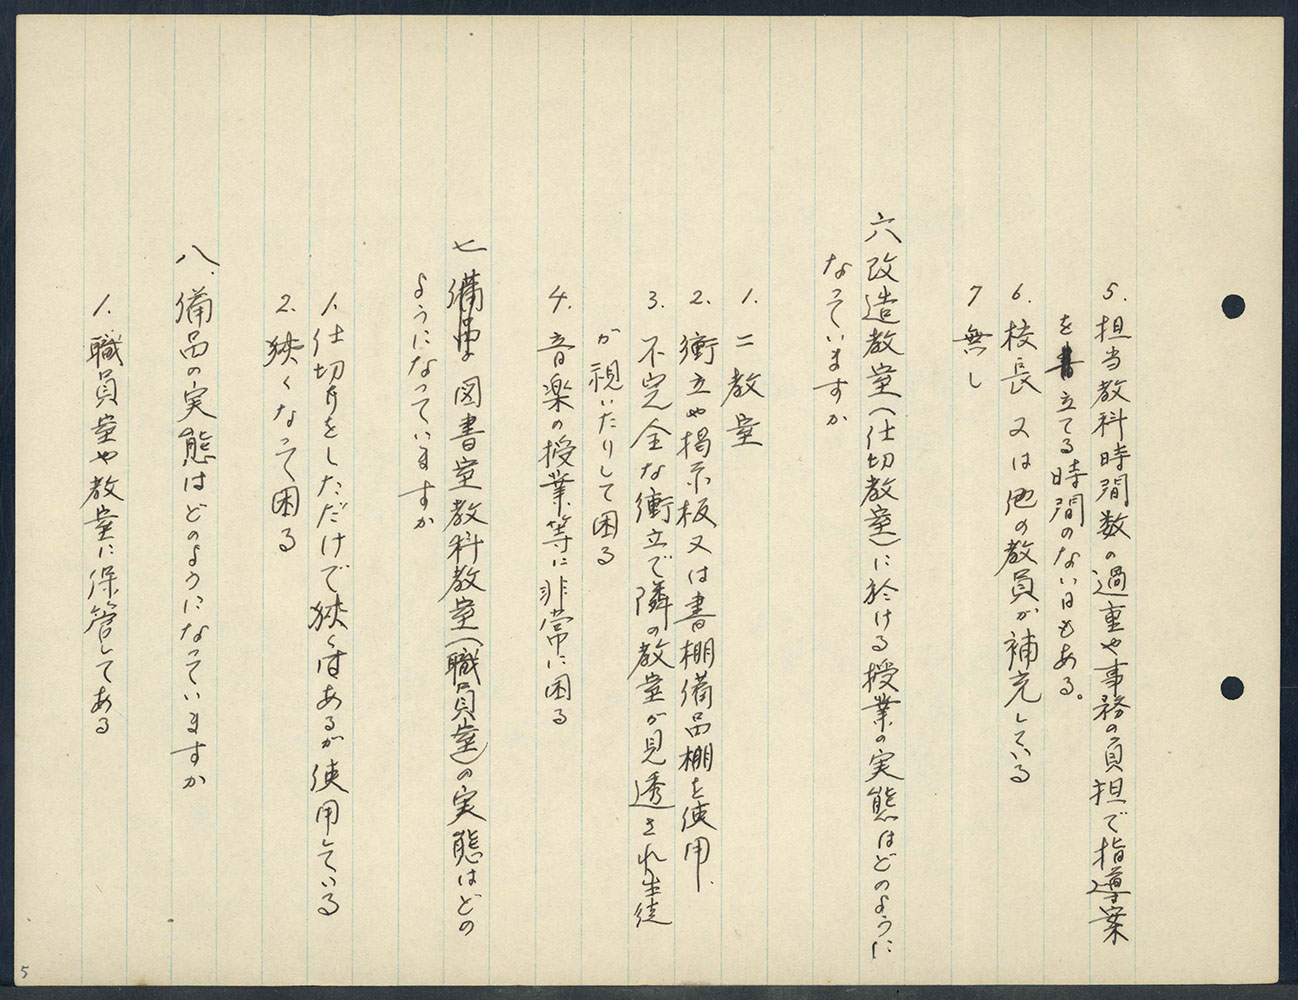 5. 担当教科時間数の過重や事務の負担で指導案
を立てる時間のない日もある。
6. 校長又は他の教員が補充している
7 無し
六 改造教室(仕切教室)に於ける授業の実態はどのように
なっていますか
1. 二教室
2. 衝立や掲示板又は書棚備品棚を使用.
3. 不完全な衝立で隣の教室が見透され生徒
が視いたりして困る
4. 音楽の授業等に非常に困る
七 図書室教科教室(職員室)の実態はどの
ようになっていますか
1. 仕切りをしただけで狭くはあるが使用している
2. 狭くなって困る
八、備品の実態はどのようになっていますか
1. 職員室や教室に保管してある
5